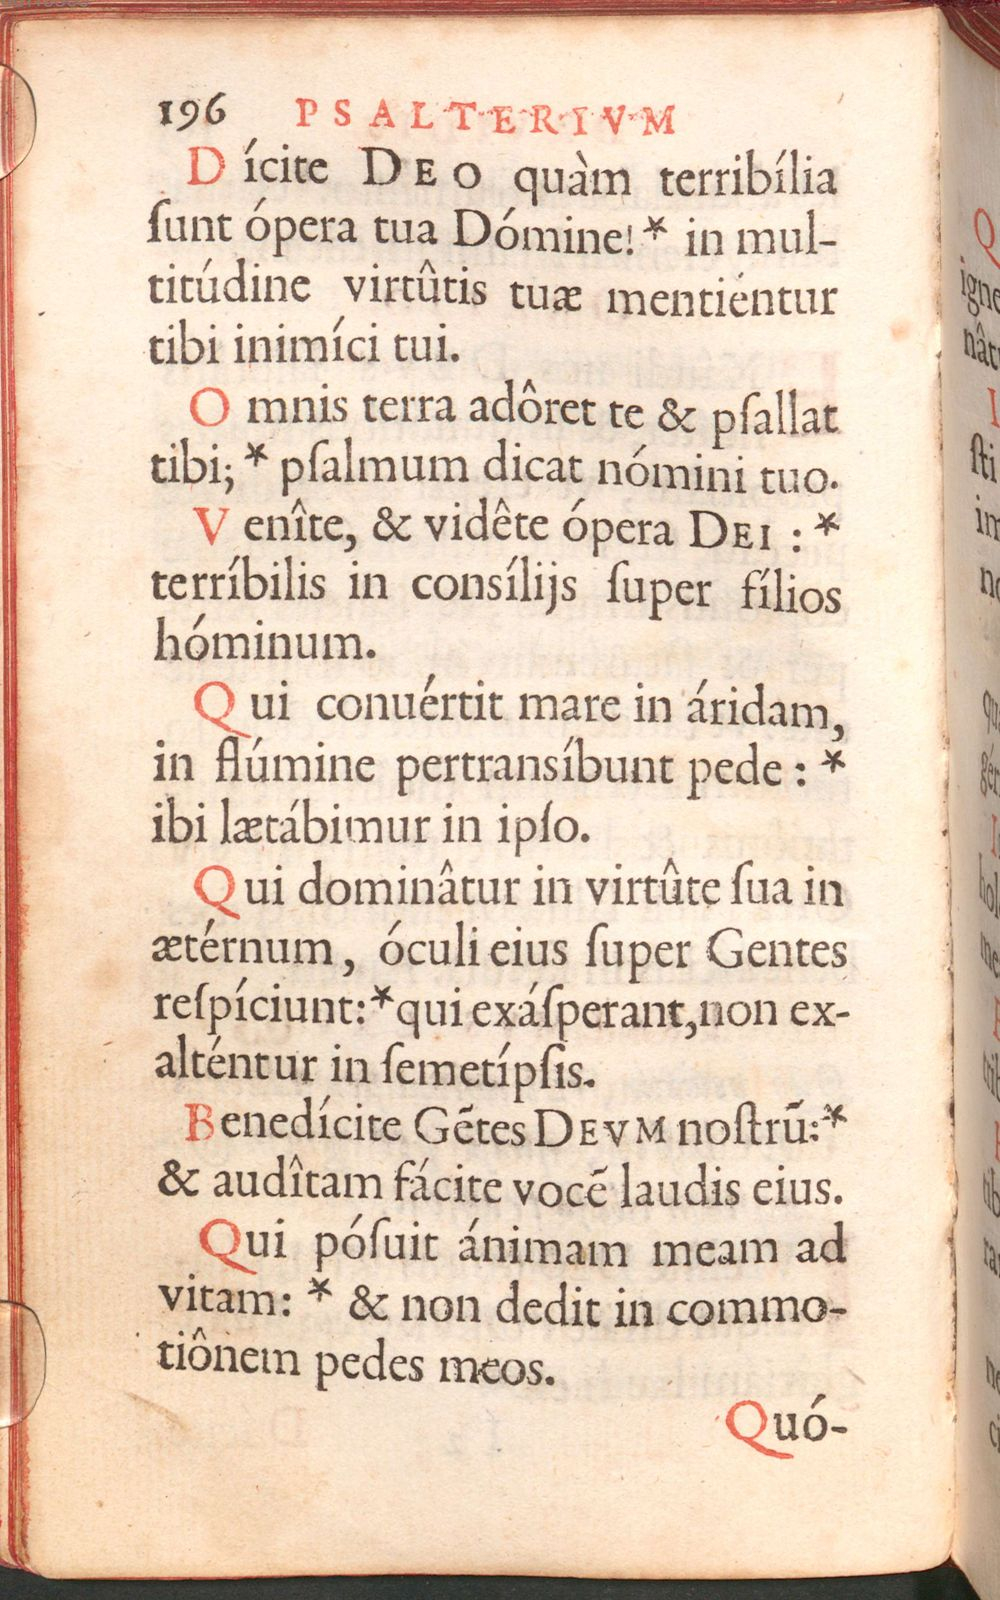 196 PSALTERIVM
Dícite DEO quàm terribília
ſunt ópera tua Dómine!* in mul-
titúdine virtûtis tuæ mentiéntur
tibi inimíci tui.
Omnis terra adôret te & pſallat
tibi; * pſalmum dicat nómini tuo.
Venîte, & vidête ópera DEI : *
terríbilis in consílijs ſuper fílios
hóminum.
Qui conuértit mare in áridam,
in flúmine pertransíbunt pede : *
ibi lætábimur in ipſo.
Qui dominâtur in virtûte ſua in
ætérnum, óculi eius ſuper Gentes
reſpíciunt:*qui exáſperant,non ex-
alténtur in ſemetípſis.
Benedícite Gẽtes DEVM noſtrũ:*
& audîtam fácite vocẽ laudis eius.
Qui póſuit ánimam meam ad
vitam: * & non dedit in commo-
tiônem pedes meos.
Quó-